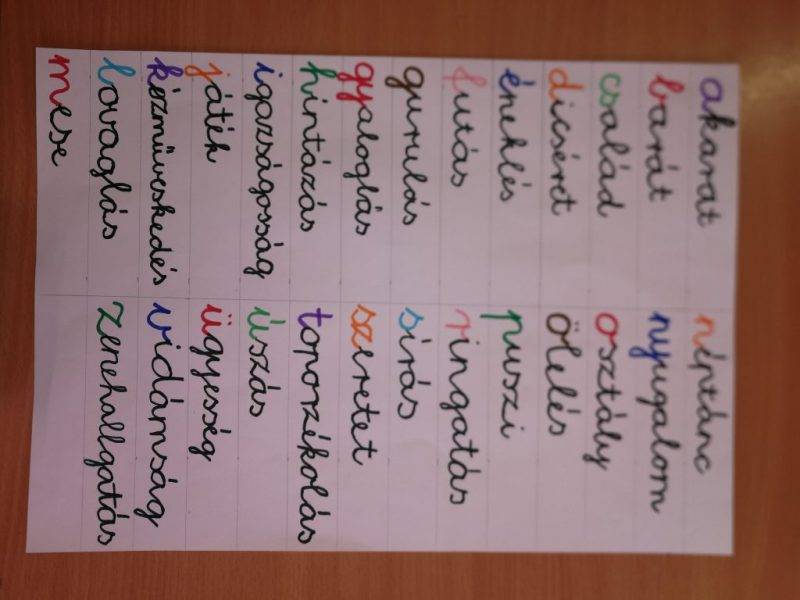 akarat
barát
család
dicséret
éneklés
futás
gurulás
gyaloglás
hintázás
igazságosság
játék
kézműveskedés
lovaglás
mese
néptánc
nyugalom
osztály
ölelés
puszi
ringatás
sírás
szeretet
toporzékolás
úszás
ügyesség
vidámság
zenehallgatás